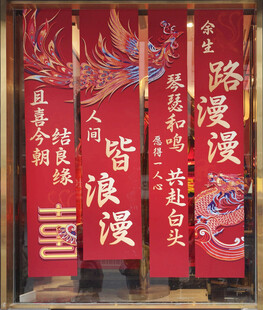 余生
路漫漫
琴瑟和鸣
愿得一人心
共赴白头
人间
皆浪漫
且喜今朝
结良缘